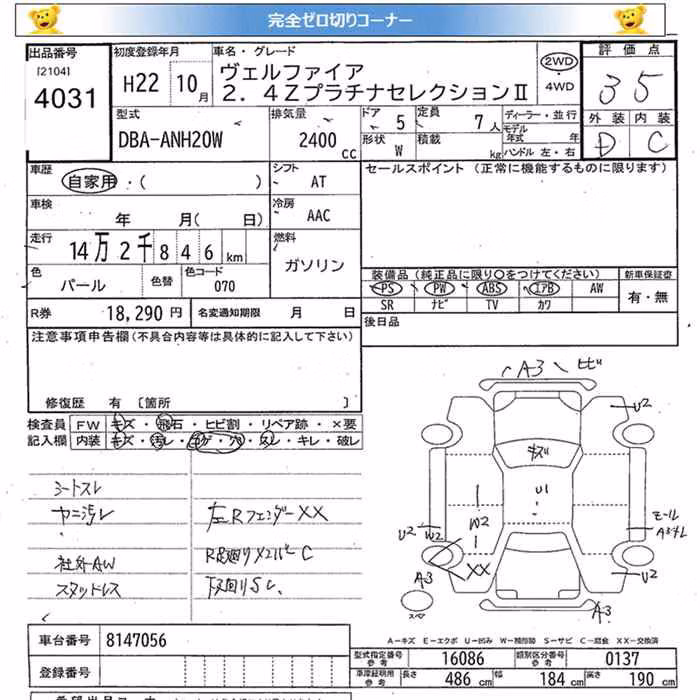 完全ゼロ切りコーナー
出品番号
[2104]
4031
初度登録年月
H22 10月
車名・グレード
ヴェルファイア
2.4ZプラチナセレクションⅡ
2WD
・
4WD
評価点
35
外装 内装
D C
型式
DBA-ANH20W
排気量
2400
cc
ドア 5
形状 W
定員 7人
積載 kg
ディーラー・並行
モデル年式 年
ハンドル 左・右
車歴
自家用・( )
シフト
AT
セールスポイント (正常に機能するものに限ります)
車検
年 月( 日)
冷房
AAC
走行
14万2千846km
燃料
ガソリン
色
パール
色替
色コード
070
装備品(純正品に限り〇をつけてください)
PS PW ABS エアB AW
SR ナビ TV カワ
新車保証書
有・無
R券 18,290円
名変通知期限 月 日
後日品
注意事項申告欄(不具合内容等は具体的に記入して下さい)
修復歴 有 [箇所 ]
検査員
記入欄
FW キズ・飛石・ヒビ割・リペア跡・×要
内装 キズ・汚レ・コゲ・穴・スレ・キレ・破レ
シートスレ
ヤニ汚レ
社外AW
スタッドレス
左Rフェンダー XX
R足廻りメンバー C
下廻りSし
A3 ヒビ
U2
キズ
U1
W2
U2 W2
XX
A3
スペ
モール
U2
A3
A-キズ E-エクボ U-凹み W-補修跡 S-サビ C-腐食 XX-交換済
車台番号 8147056
登録番号
型式指定番号
参考
16086
類別区分番号
参考
0137
車庫証明用
参考
長さ 486 cm
幅 184 cm
高さ 190 cm
希望出品コーナー